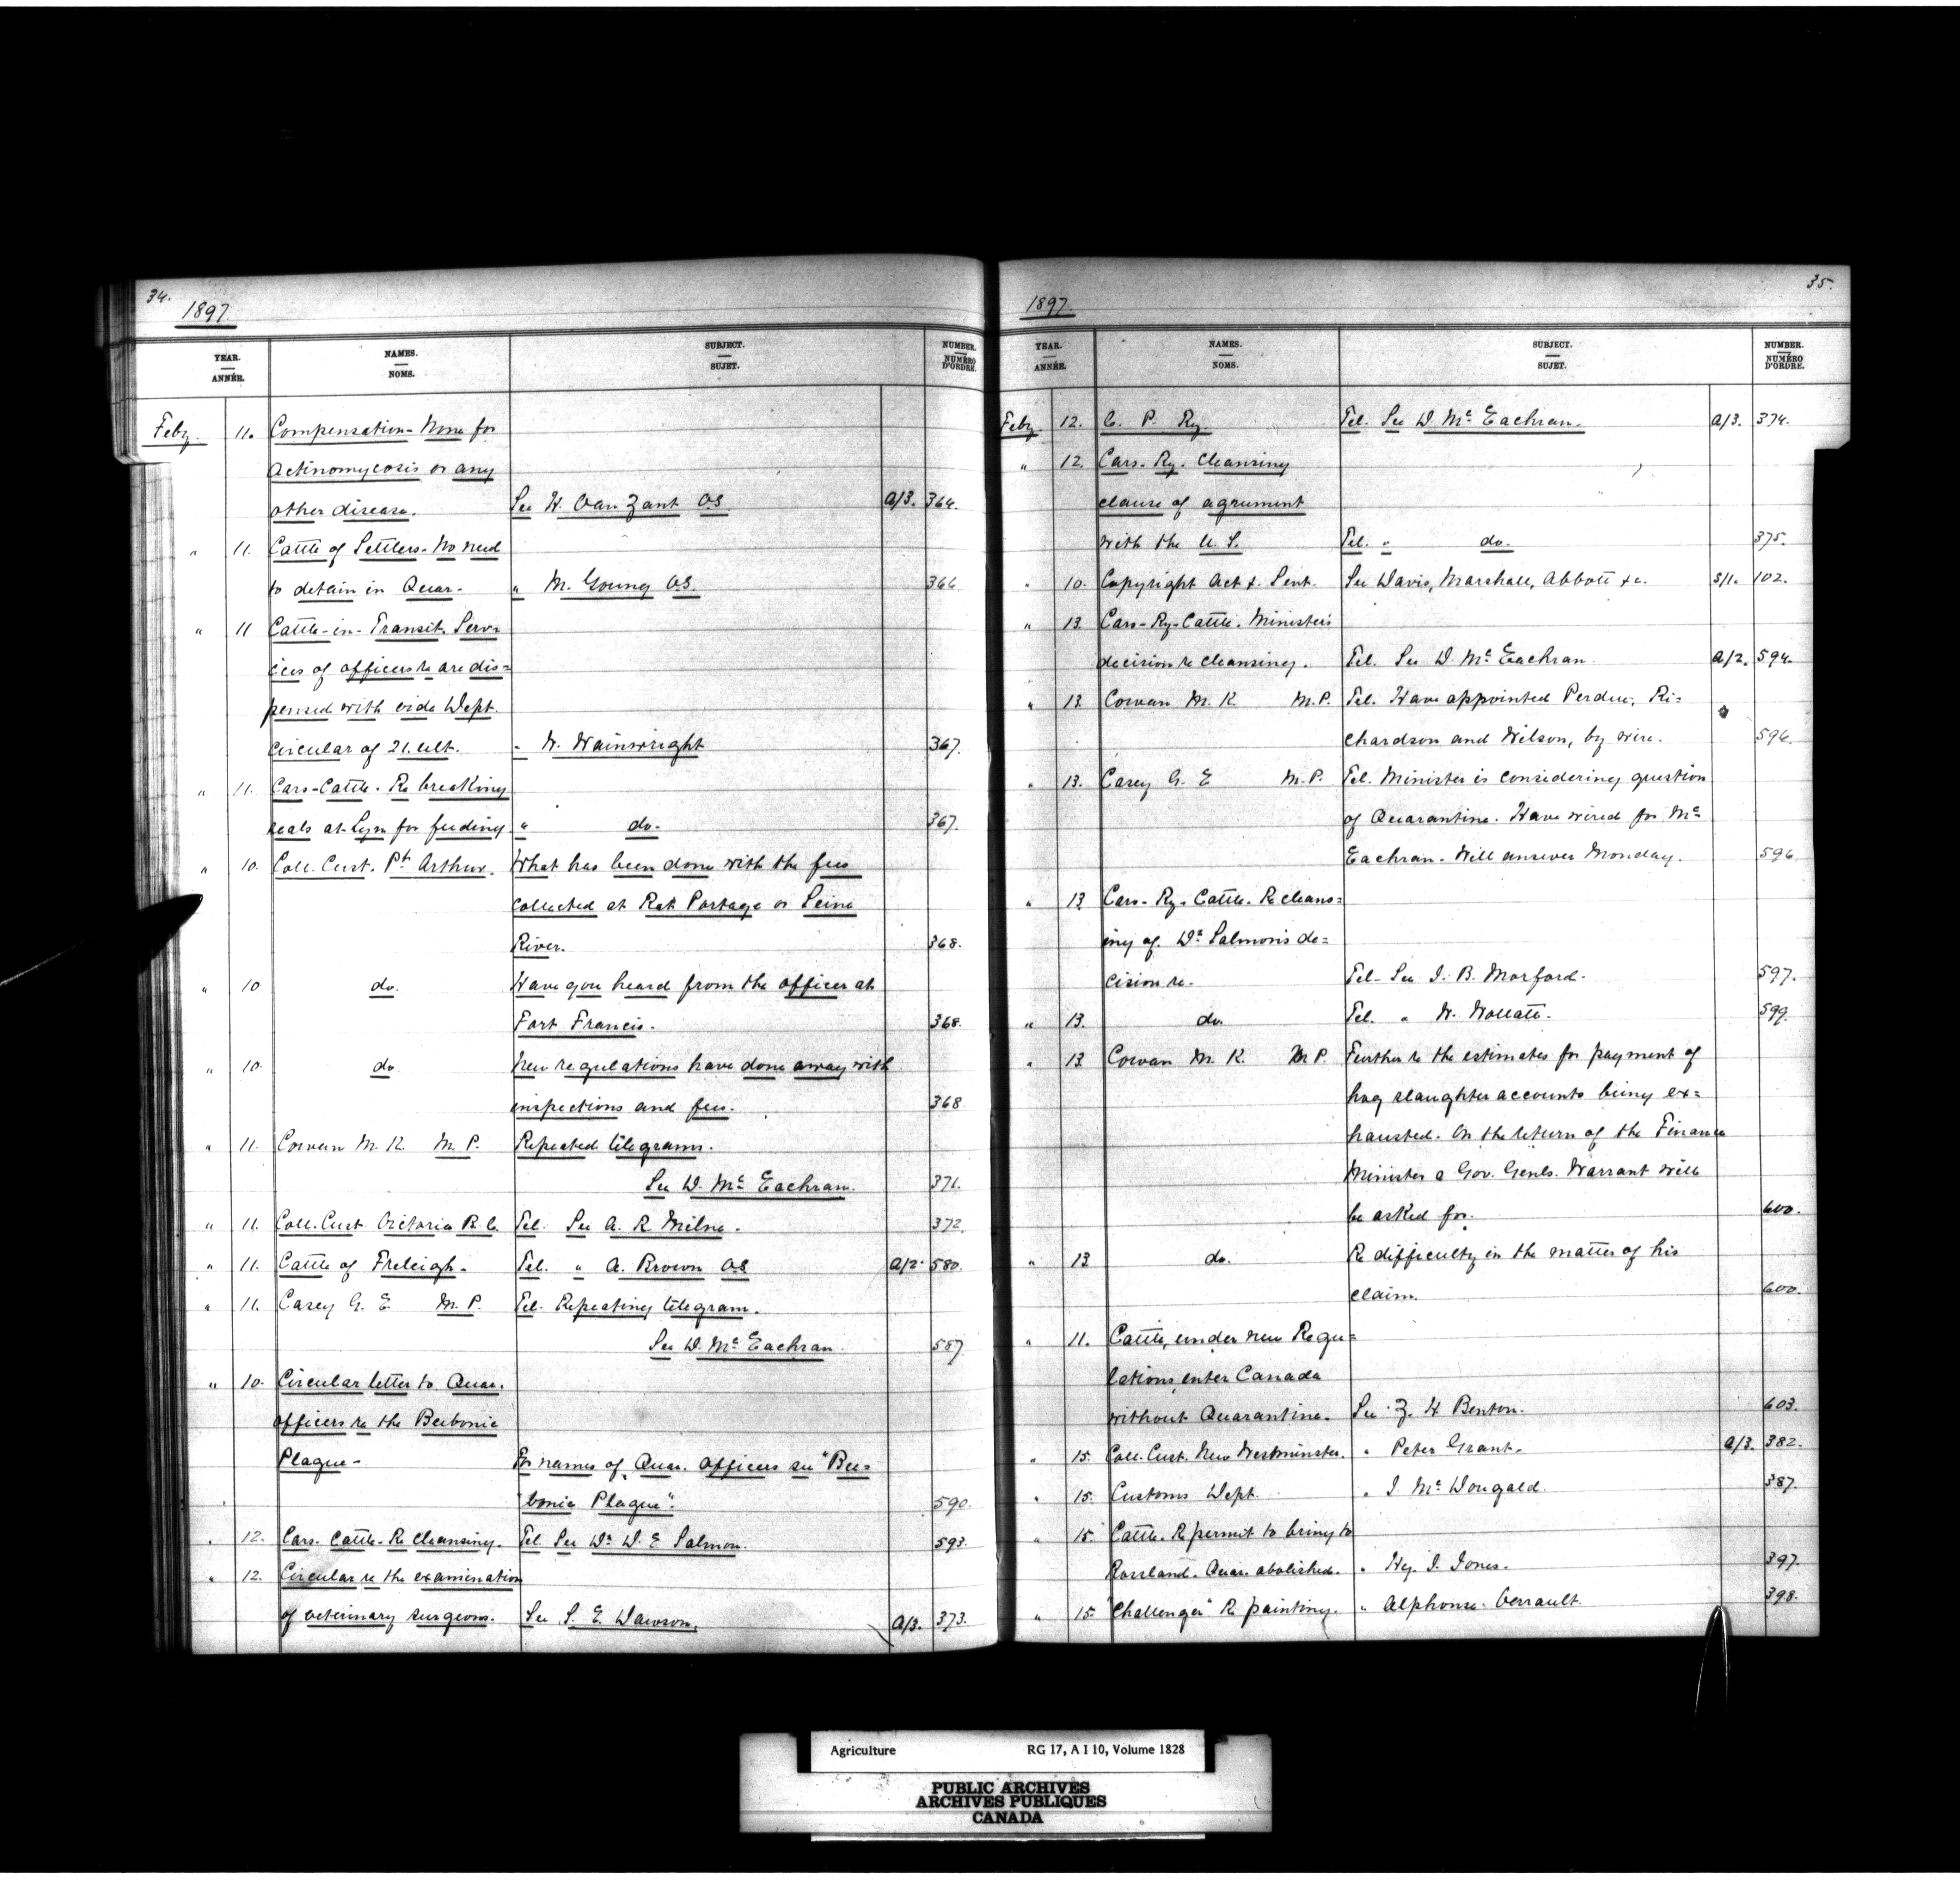 34.
1897.
YEAR. ANNÉE.
NAMES. NOMS.
SUBJECT. SUJET.
NUMBER. NUMÉRO D'ORDRE.
Feby. 11. Compensation - None for
Actinomycosis or any
other disease. See H. Van Zant OS. A/3. 364.
" 11. Cattle of Settlers - No need
to detain in Quar. " M. Young OS. 366
" 11 Cattle-in-Transit. Serv-
ices of officers re are dis=
pensed with vide Dept.
circular of 21. ult. " W. Wainwright 367.
" 11. Cars-Cattle. Re breaking
seals at Lyn for feeding " do. 367.
" 10. Coll. Cust. Pt. Arthur. What has been done with the fees
collected at Rat Portage or Seine
River. 368.
" 10 do. Have you heard from the officer at
Fort Francis. 368.
" 10. do New regulations have done away with
inspections and fees. 368.
" 11. Cowan M. K. M.P. Repeated telegrams.
See D. Mc Eachran. 371.
" 11. Coll. Cust Victoria B.C. Tel. See A. R. Milne. 372.
" 11. Cattle of Freleigh. Tel. " A. Brown OS A/2. 580.
" 11. Casey G. E. M.P. Tel. Repeating telegram.
See D. Mc Eachran. 587
" 10. Circular letter to Quar.
officers re the Bubonic
Plague - For names of Quar. officers see "Bu=
bonic Plague". 590.
" 12. Cars. Cattle. Re Cleansing. Tel See Dr. D. E Salmon. 593.
" 12. Circular re the examination
of veterinary surgeons. See S. E. Dawson. A/3. 373.
35.
1897.
YEAR. ANNÉE.
NAMES. NOMS.
SUBJECT. SUJET.
NUMBER. NUMÉRO D'ORDRE.
Feby. 12. C. P. Ry. Tel. See D Mc Eachran. A/3. 374.
" 12. Cars. Ry. Cleansing
clause of agrument
with the U. S. Tel. " do. 375.
" 10. Copyright Act &. Sent. See Davis, Marshall, Abbott &c. S/1. 102.
" 13. Cars-Ry-Cattle. Minister's
decision re cleansing. Tel. See D. Mc Eachran A/2. 594.
" 13. Cowan M. K. M.P. Tel. Have appointed Perdue, Ri=
chardson and Wilson, by wire. 596.
" 13. Casey G. E M.P. Tel. Minister is considering question
of Quarantine. Have wired for Mc
Eachran. Will answer Monday. 596.
" 13. Cars. Ry. Cattle. Re cleans=
ing of. Dr. Salmon's de=
cision re. Tel. See J. B. Morford. 597.
" 13. do. Tel. " W. Wollatt. 599.
" 13 Cowan M. K. M.P. Further re the estimates for payment of
hog slaughter accounts being ex=
hausted. On the return of the Finance
Minister a Gov. Genls. Warrant will
be asked for. 600.
" 13 do. Re difficulty in the matter of his
claim. 600.
" 11. Cattle, under new Regu=
lations enter Canada
without Quarantine. See Z. H Benton. 603.
" 15. Coll. Cust. New Westminster. " Peter Grant. A/3. 382.
" 15. Customs Dept. " J Mc Dougald. 387.
" 15. Cattle. Re permit to bring to
Rossland. Quar. abolished. " Hy. J. Jones. 397.
" 15. "Challenger" Re painting. " Alphonse Verrault. 398.
Agriculture RG 17, A I 10, Volume 1828
PUBLIC ARCHIVES
ARCHIVES PUBLIQUES
CANADA